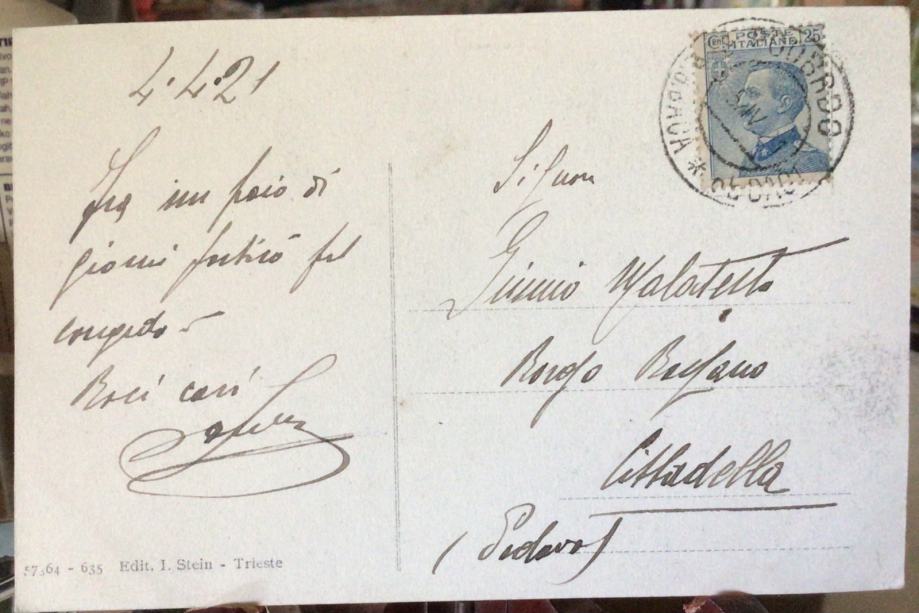 4.4.21
Fra un paio di
giorni partirò pel
congedo -
Baci cari
Signor
Giunio Malatesta
Borgo Bassano
Cittadella
(Padova)
POSTE
ITALIANE
25
57364 - 635 Edit. I. Stein - Trieste